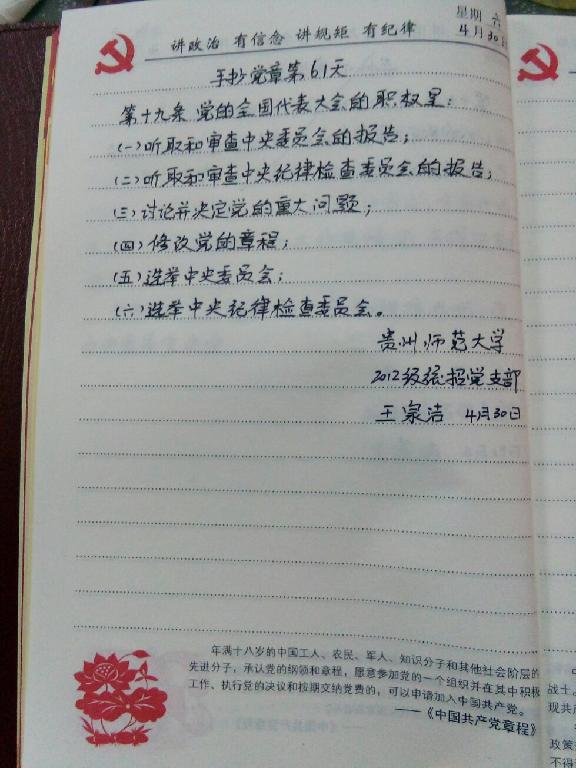 星期 六
4月30日
讲政治 有信念 讲规矩 有纪律
手抄党章第61天
第十九条 党的全国代表大会的职权是:
(一)听取和审查中央委员会的报告;
(二)听取和审查中央纪律检查委员会的报告;
(三)讨论并决定党的重大问题;
(四)修改党的章程;
(五)选举中央委员会;
(六)选举中央纪律检查委员会。
贵州师范大学
2012级统招党支部
王泉洁 4月30日
年满十八岁的中国工人、农民、军人、知识分子和其他社会阶层的
先进分子,承认党的纲领和章程,愿意参加党的一个组织并在其中积极
工作、执行党的决议和按期交纳党费的,可以申请加入中国共产党。
——《中国共产党章程》
战士,
现共产
政策
不得